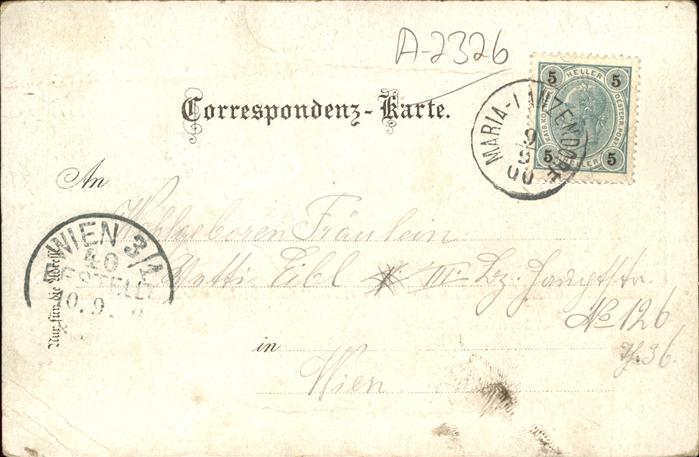 A-2326
5 HELLER 5
5 HELLER 5
Correspondenz-Karte.
MARIA-LANZENDORF
9
9
00
An
Wohlgeboren Fräulein
WIEN 3/1
40
BESTELLT
0.9.
Netti Eibl III. Bz. Hauptstr.
No 126
Th. 36.
Nur für die Adresse
in
Wien